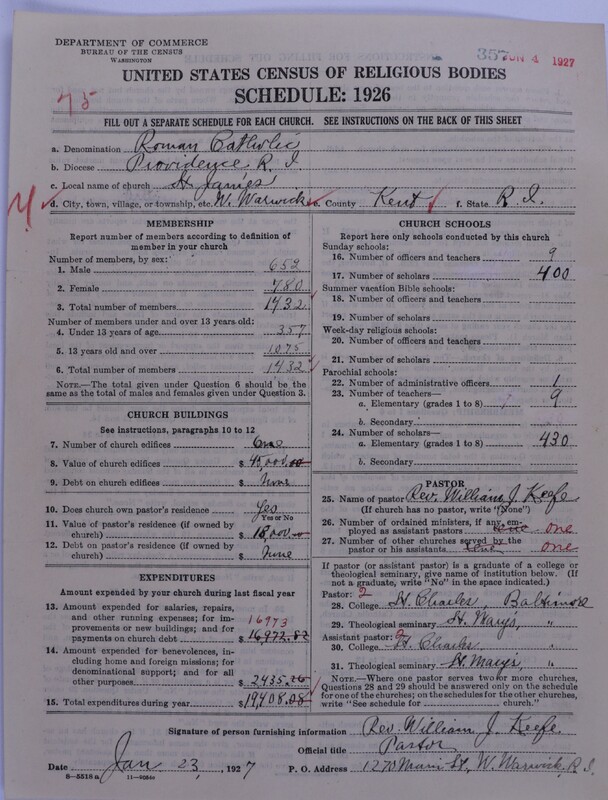 DEPARTMENT OF COMMERCE
BUREAU OF THE CENSUS
WASHINGTON
357 JUN 4 1927
UNITED STATES CENSUS OF RELIGIOUS BODIES
SCHEDULE: 1926
75
FILL OUT A SEPARATE SCHEDULE FOR EACH CHURCH. SEE INSTRUCTIONS ON THE BACK OF THIS SHEET
a. Denomination Roman Catholic
b. Diocese Providence R. I.
c. Local name of church St James
d. City, town, village, or township, etc. W. Warwick e. County Kent f. State R. I.
MEMBERSHIP
Report number of members according to definition of
member in your church
Number of members, by sex:
1. Male 652
2. Female 780
3. Total number of members 1432
Number of members under and over 13 years old:
4. Under 13 years of age 357
5. 13 years old and over 1075
6. Total number of members 1432
NOTE.—The total given under Question 6 should be the
same as the total of males and females given under Question 3.
CHURCH BUILDINGS
See instructions, paragraphs 10 to 12
7. Number of church edifices One
8. Value of church edifices $ 45,000.00
9. Debt on church edifices $ None
10. Does church own pastor's residence Yes
Yes or No
11. Value of pastor's residence (if owned by
church) $ 18,000.00
12. Debt on pastor's residence (if owned by
church) $ None
EXPENDITURES
Amount expended by your church during last fiscal year
13. Amount expended for salaries, repairs,
and other running expenses; for im-
provements or new buildings; and for
16973
payments on church debt $ 16972.82
14. Amount expended for benevolences,
including home and foreign missions; for
denominational support; and for all
other purposes $ 2435.26
15. Total expenditures during year $ 19408.08
CHURCH SCHOOLS
Report here only schools conducted by this church
Sunday schools:
16. Number of officers and teachers 9
17. Number of scholars 400
Summer vacation Bible schools:
18. Number of officers and teachers
19. Number of scholars
Week-day religious schools:
20. Number of officers and teachers
21. Number of scholars
Parochial schools:
22. Number of administrative officers 1
23. Number of teachers—
a. Elementary (grades 1 to 8) 9
b. Secondary
24. Number of scholars—
a. Elementary (grades 1 to 8) 430
b. Secondary
PASTOR
25. Name of pastor Rev. William J. Keefe
(If church has no pastor, write "None")
26. Number of ordained ministers, if any, em-
ployed as assistant pastors one
27. Number of other churches served by the
pastor or his assistants one
If pastor (or assistant pastor) is a graduate of a college or
theological seminary, give name of institution below. (If
not a graduate, write "No" in the space indicated.)
Pastor: 2
28. College St. Charles, Baltimore
29. Theological seminary St. Mary's, "
Assistant pastor: 2
30. College St. Charles "
31. Theological seminary St. Mary's, "
NOTE.—Where one pastor serves two or more churches,
Questions 28 and 29 should be answered only on the schedule
for one of the churches; on the schedules for the other churches,
write "See schedule for church."
Signature of person furnishing information Rev. William J. Keefe
Official title Pastor
Date Jan 23, 1927 P. O. Address 1270 Main St, W. Warwick, R. I.
8—5518a